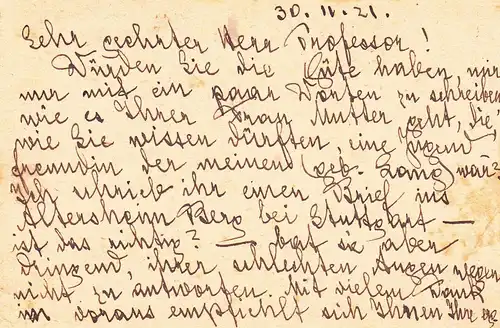 30. 11. 21.
Sehr geehrter Herr Professor!
Würden Sie die Güte haben, mir
nur mit ein paar Worten zu schreiben
wie es Ihrer Frau Mutter geht, die,
wie Sie wissen dürften, eine Jugend
freundin der meinen (geb. Lang) war?
Ich schrieb ihr einen Brief ins
Altersheim Berg bei Stuttgart —
ist das richtig? — bat sie aber
dringend, ihrer schlechten Augen wegen
nicht zu antworten. Mit vielem Dank
im voraus empfiehlt sich Ihnen Ihre